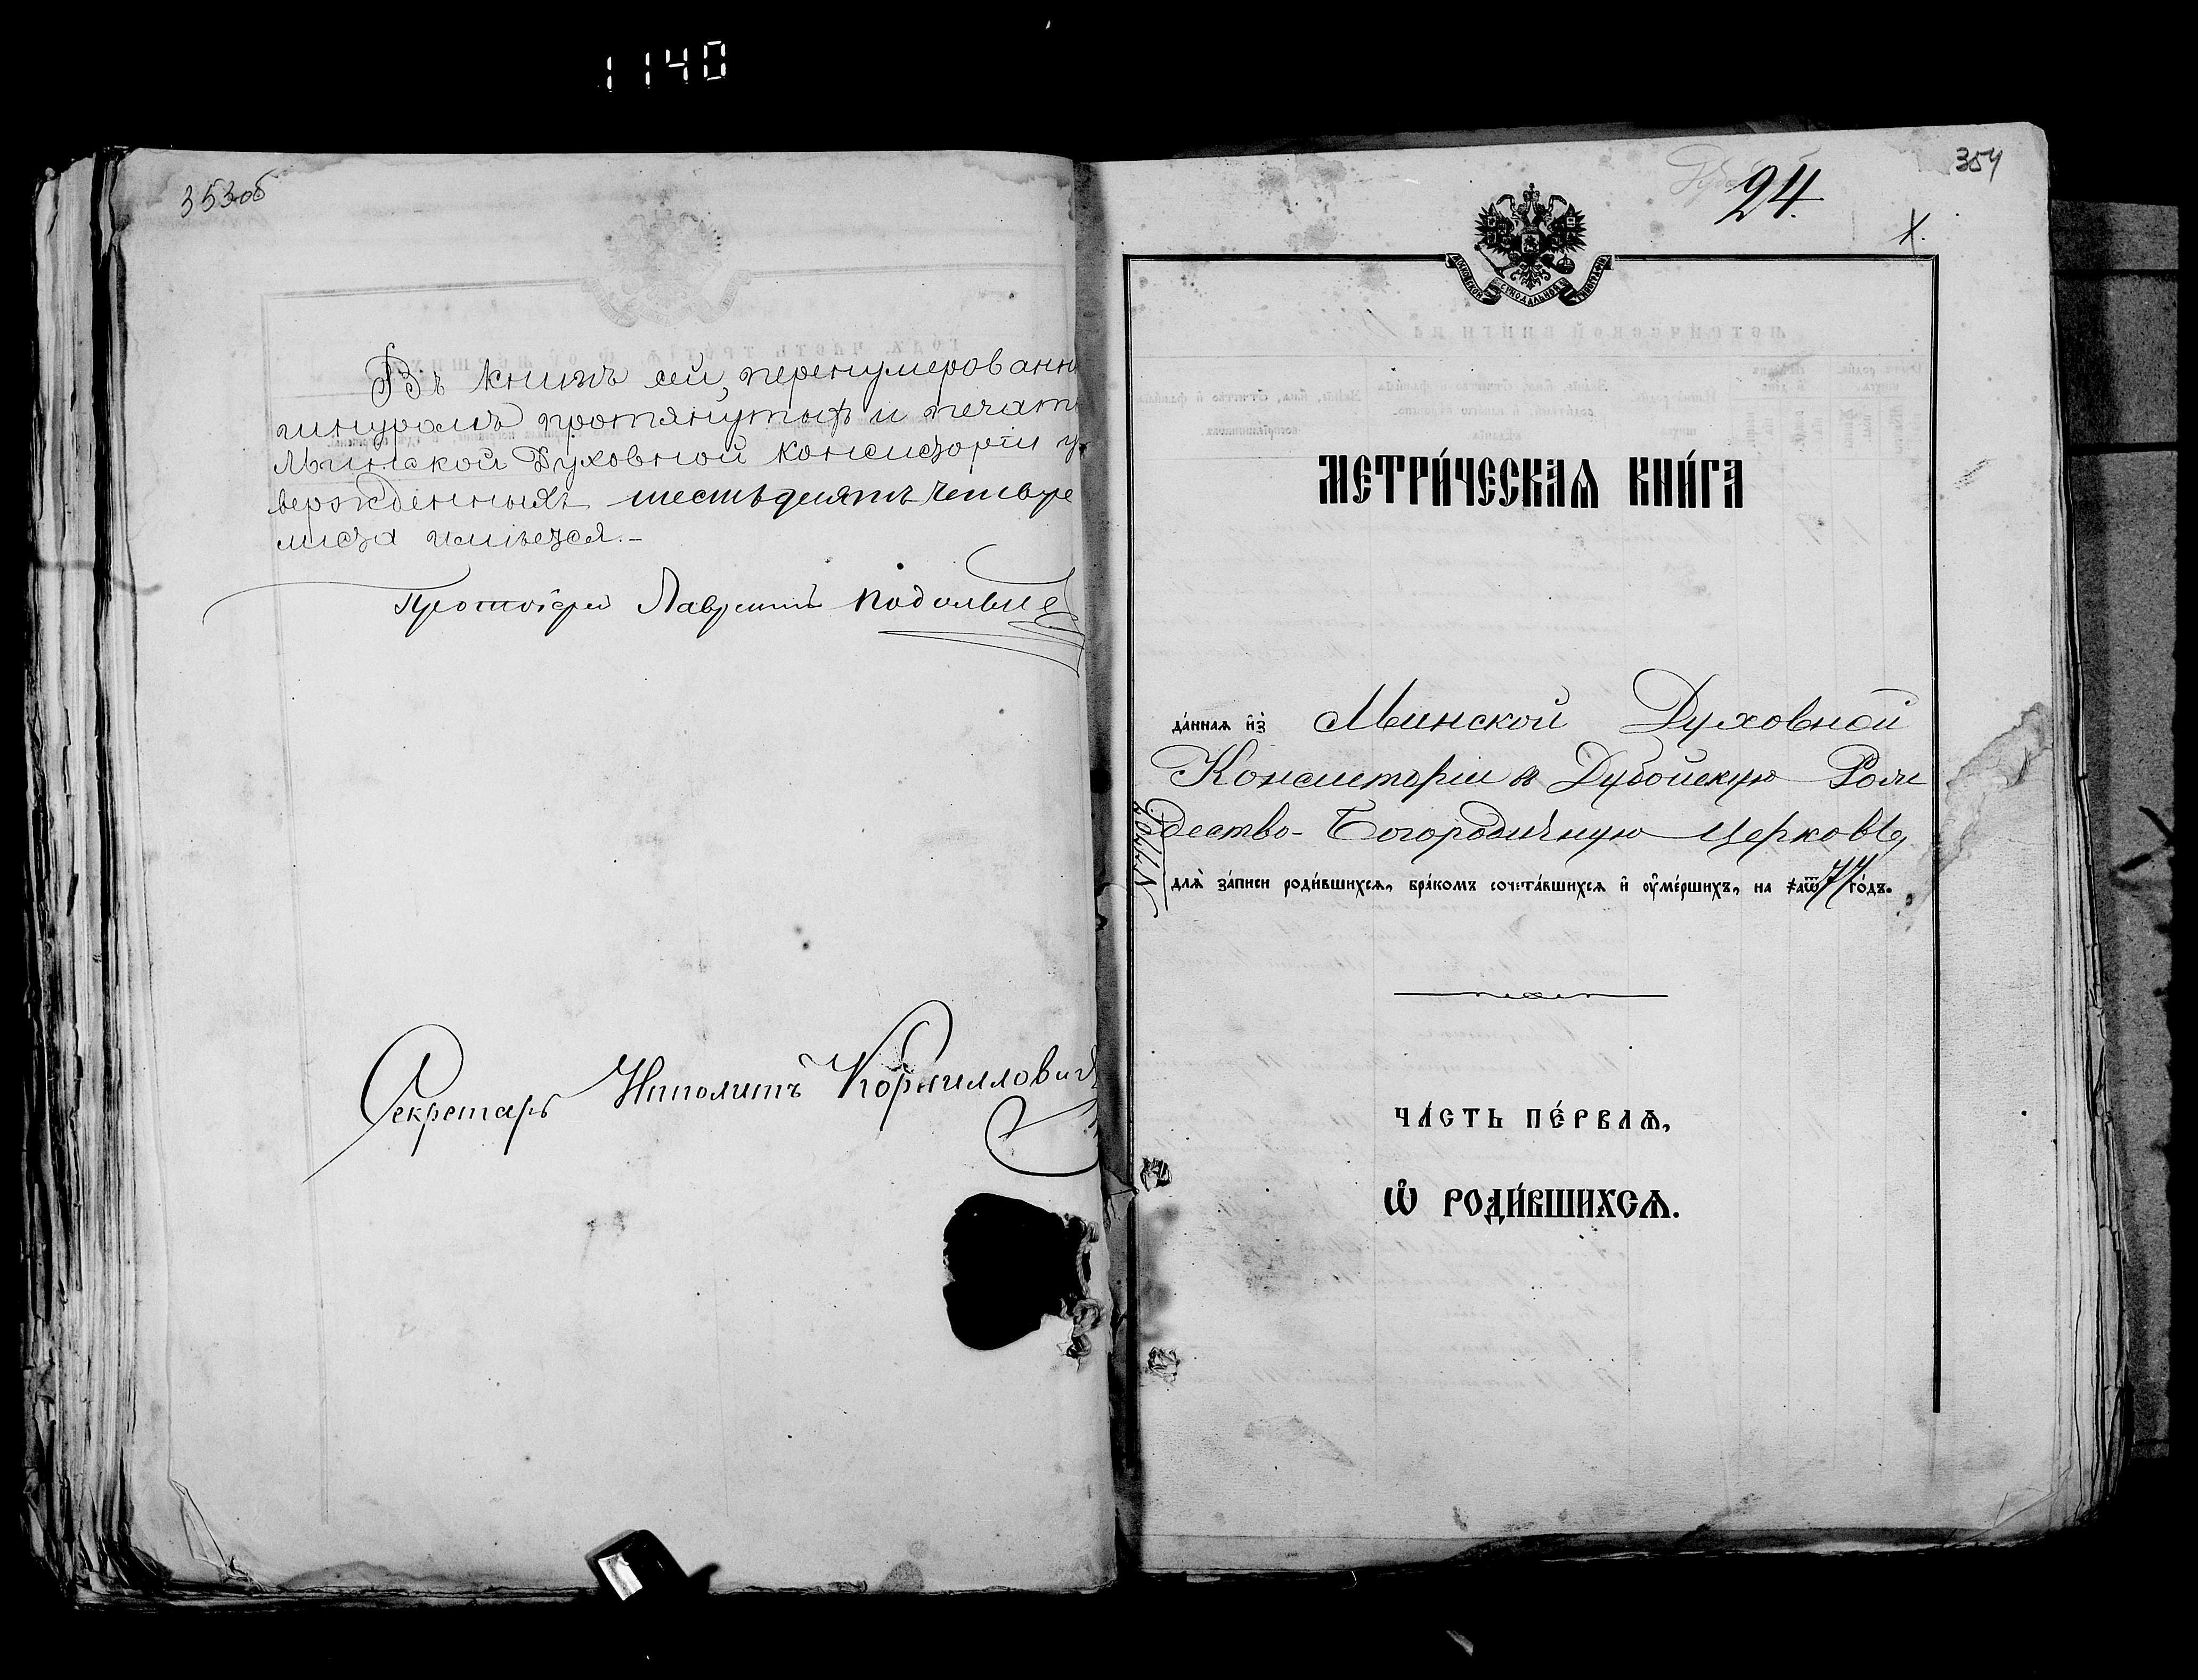 1140
353об
Въ книгѣ сей, перенумерованн
шнуромъ протянутыхъ и печать
Минской Духовной Консисторіи ут
вержденныхъ шестьдесятъ четыре
листа имѣется.-
Протоіерей Лаврентій Подольне
Секретарь Ипполитъ Корнилловичъ
354
24.
X.
МОСКОВСКОЙ СѴНОДАЛЬНОЙ ТИПОГРАФІИ
МЕТРИ́ЧЕСКАѦ КНИ́ГА
да́ннаѧ и҆з̾ Минской Духовной
Консисторіи въ Дубойскую Рож
дество-Богородичную церковь,
длѧ̀ за́писи роди́вшихсѧ, бра́комъ сочета́вшихсѧ и҆ ᲂу҆ме́ршихъ, на ҂аѿ77 го́дъ.
ЧА́СТЬ ПЕ́РВАѦ,
Ѡ҆ РОДИ́ВШИХСѦ.